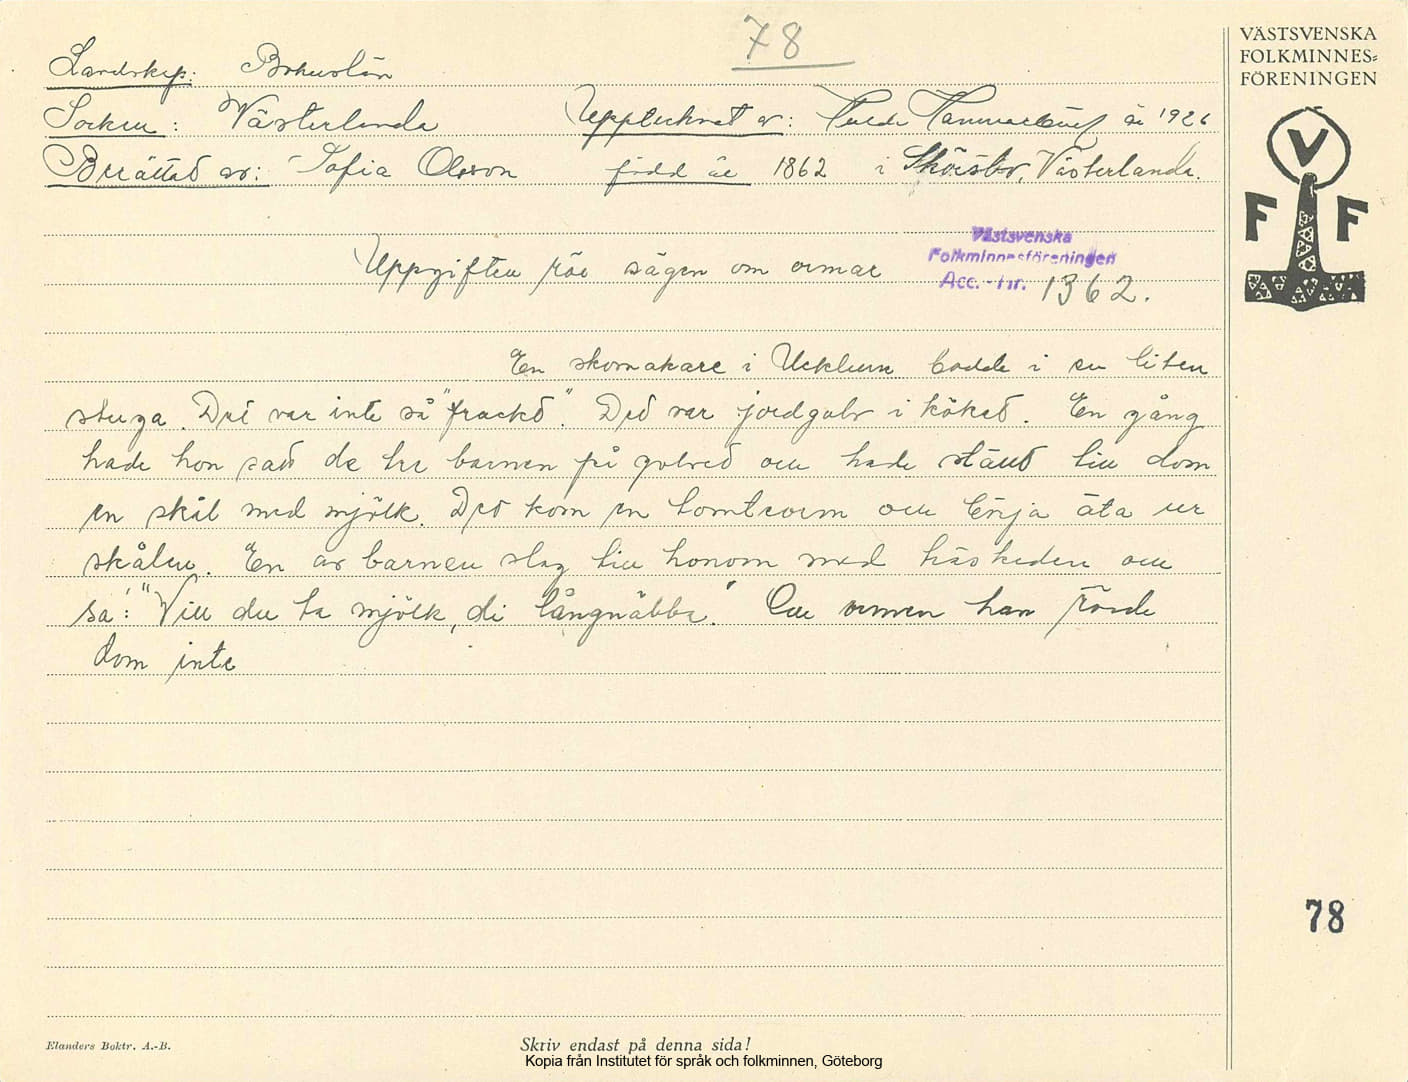 78
VÄSTSVENSKA
FOLKMINNES-
FÖRENINGEN
Landskap: Bohuslän
Socken: Västerlanda Upptecknat av: år 1926
Berättat av: Sofia Olsson född år 1862 i Västerlanda.
V
F F
Västsvenska
Folkminnesföreningen
Acc. - nr. 1362.
Uppgiften rör sägen om ormar
En skomakare i Ucklum bodde i en liten
stuga. Det var inte så "frackt". Det var jordgolv i köket. En gång
hade hon satt de tre barnen på golvet och hade ställt till dom
en skål med mjölk. Det kom en tomtorm och börja äta ur
skålen. En av barnen slog till honom med träskeden och
sa: "Vill du ta mjölk, di långnäbba." Och ormen han rörde
dom inte
78
Elanders Boktr. A.-B.
Skriv endast på denna sida!
Kopia från Institutet för språk och folkminnen, Göteborg